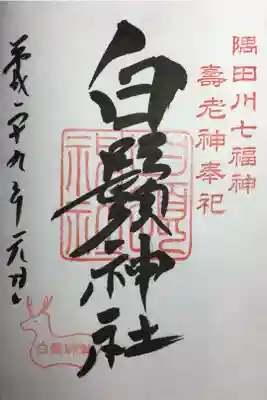 隅田川七福神
壽老神奉祀
白鬚神社
平成二十九年元旦
白鬚神社